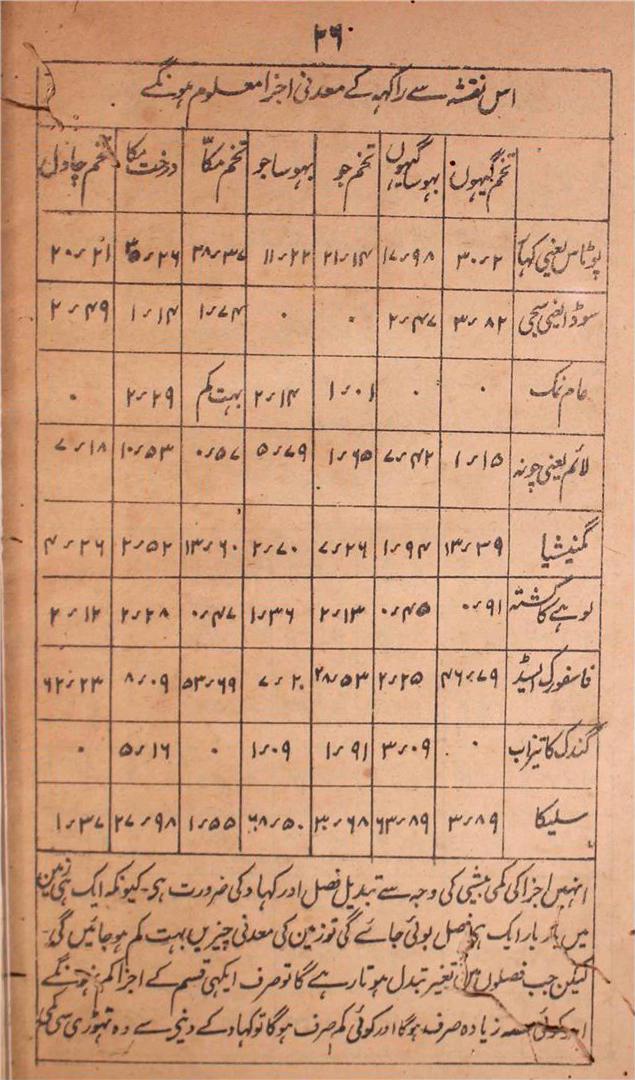 ۲۶۰
اس نقشہ سے راکہہ کے معدنی اجزا معلوم ہونگے
تخم گیہوں بہوسا گیہوں تخم جو بہوسا جو تخم مکّا درخت مکا تخم چاول
پوٹاس یعنی کہار ۳۰٫۲ ۱۷٫۹۸ ۲۱٫۱۴ ۱۱٫۲۲ ۲۸٫۳۷ ۳۵٫۲۶ ۲۰٫۲۱
سوڈا یعنی سجی ۳٫۸۲ ۲٫۴۷ ۰ ۰ ۱٫۷۴ ۱٫۱۴ ۲٫۴۹
عام نمک ۰ ۰ ۱٫۰۱ ۲٫۱۴ بہت کم ۲٫۲۹ ۰
لائم یعنی چونہ ۱٫۱۵ ۷٫۴۲ ۱٫۶۵ ۵٫۷۹ ۰٫۵۷ ۱۰٫۵۳ ۷٫۱۸
مگنیشیا ۱۳٫۳۹ ۱٫۹۴ ۷٫۲۶ ۲٫۷۰ ۱۳٫۶۰ ۲٫۵۲ ۴٫۲۶
لوہے کا کشتہ ۰٫۹۱ ۰٫۴۵ ۲٫۱۳ ۱٫۳۶ ۰٫۴۷ ۲٫۲۸ ۲٫۱۲
فاسفورک ایسڈ ۴۶٫۷۹ ۲٫۲۵ ۲۸٫۵۳ ۷٫۲۰ ۵۳٫۶۹ ۸٫۰۹ ۶۲٫۲۳
گندک کا تیزاب ۰ ۳٫۰۹ ۱٫۹۱ ۱٫۰۹ ۰ ۵٫۱۶ ۰
سلیکا ۳٫۸۹ ۶۳٫۸۹ ۳۰٫۶۸ ۶۸٫۵۰ ۱٫۵۵ ۲۷٫۹۸ ۱٫۳۷
انہیں اجزا کی کمی بیشی کی وجہ سے تبدیل فصل اور کہاد کی ضرورت ہی۔ کیونکہ ایک ہی زمین
میں بار بار ایک ہی فصل بوئی جائے گی تو زمین کی معدنی چیزیں بہت کم ہو جائیں گی۔
لیکن جب فصلوں میں تغیر تبدل ہوتا رہے گا تو صرف ایکہی قسم کے اجزا کم نہونگے
اور کوئی حصہ زیادہ صرف ہوگا اور کوئی کم صرف ہوگا تو کہاد کے دینی سے وہ تہوڑی سی کمی